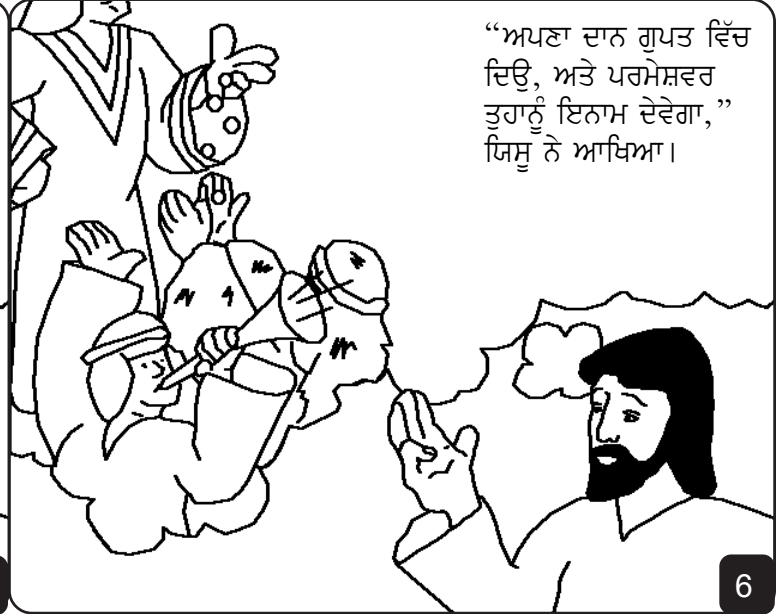 “ਅਪਣਾ ਦਾਨ ਗੁਪਤ ਵਿੱਚ
ਦਿਉ, ਅਤੇ ਪਰਮੇਸ਼ਵਰ
ਤੁਹਾਨੂੰ ਇਨਾਮ ਦੇਵੇਗਾ,”
ਯਿਸੂ ਨੇ ਆਖਿਆ।
6